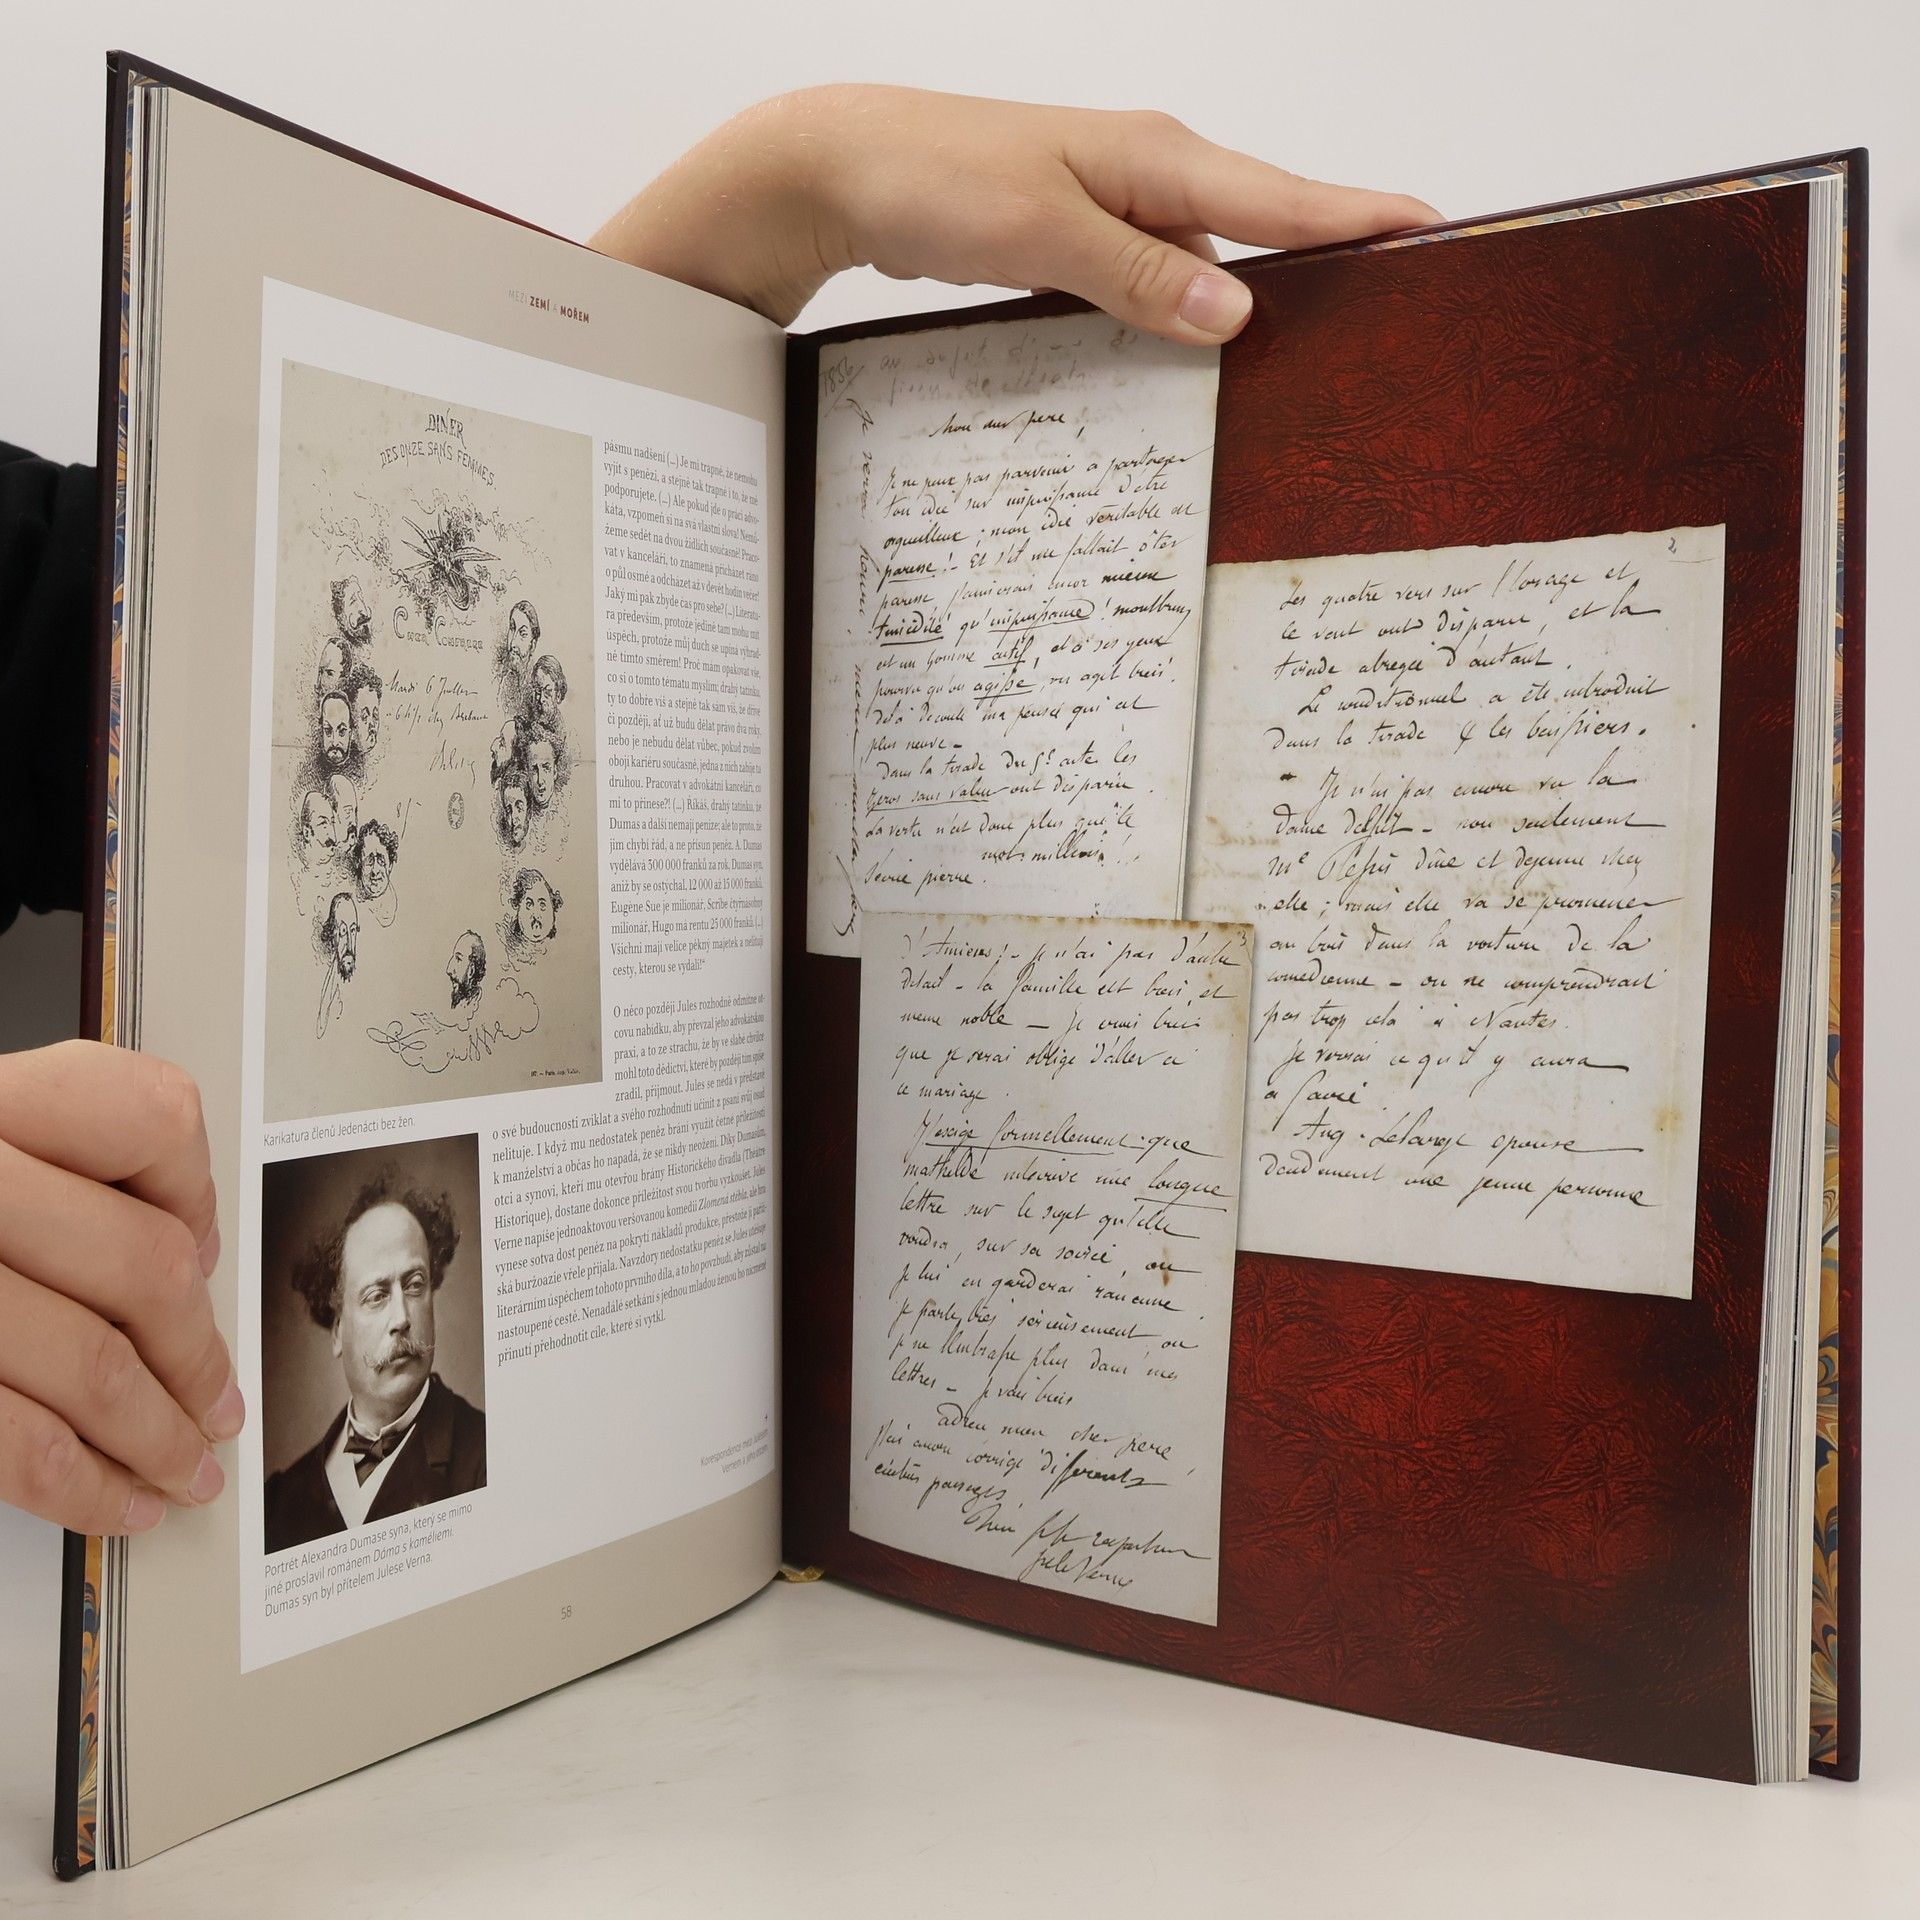 MEZI ZEMÍ A MOŘEM
DINER
DES ONZE SANS FEMMES
Mardi 6 Juillet
Karikatura členů Jedenácti bez žen.
pásmu nadšení (...) Je mi trapné, že nemohu
vyjít s penězi, a stejně tak trapné i to, že mě
podporujete. (...) Ale pokud jde o práci advo-
káta, vzpomeň si na svá vlastní slova! Nemů-
žeme sedět na dvou židlích současně! Praco-
vat v kanceláři, to znamená přicházet ráno
o půl osmé a odcházet až v devět hodin večer!
Jaký mi pak zbyde čas pro sebe? (...) Literatu-
ra především, protože jedině tam mohu mít
úspěch, protože můj duch se upíná výhrad-
ně tímto směrem! Proč mám opakovat vše,
co si o tomto tématu myslím; drahý tatínku,
ty to dobře víš a stejně tak sám víš, že dříve
či později, ať už budu dělat právo dva roky,
nebo je nebudu dělat vůbec, pokud zvolím
obojí kariéru současně, jedna z nich zabije tu
druhou. Pracovat v advokátní kanceláři, co
mi to přinese?! (...) Říkáš, drahý tatínku, že
Dumas a další nemají peníze; ale to proto, že
jim chybí řád, a ne přísun peněz. A. Dumas
vydělává 300 000 franků za rok, Dumas syn,
aniž by se ostýchal, 12 000 až 15 000 franků,
Eugène Sue je milionář, Scribe čtyřnásobný
milionář, Hugo má rentu 25 000 franků. (...)
Všichni mají velice pěkný majetek a nelitují
cesty, kterou se vydali!“
O něco později Jules rozhodně odmítne ot-
covu nabídku, aby převzal jeho advokátskou
praxi, a to ze strachu, že by ve slabé chvilce
mohl toto dědictví, které by později tím spíše
zradil, přijmout. Jules se nedá v představě
o své budoucnosti zviklat a svého rozhodnutí učinit z psaní svůj osud
nelituje. I když mu nedostatek peněz brání využít četné příležitosti
k manželství a občas ho napadá, že se nikdy neožení. Díky Dumasům,
otci a synovi, kteří mu otevřou brány Historického divadla (Théâtre
Historique), dostane dokonce příležitost svou tvorbu vyzkoušet. Jules
Verne napíše jednoaktovou veršovanou komedii Zlomená stébla, ale hra
vynese sotva dost peněz na pokrytí nákladů produkce, přestože ji pařížská
ská buržoazie vřele přijala. Navzdory nedostatku peněz se Jules utěšuje
literárním úspěchem tohoto prvního díla, a to ho povzbudí, aby zůstal na
nastoupené cestě. Nenadálé setkání s jednou mladou ženou ho nicméně
přinutí přehodnotit cíle, které si vytkl.
Korespondence mezi Julesem
Vernem a jeho otcem.
Portrét Alexandra Dumase syna, který se mimo
jiné proslavil románem Dáma s kaméliemi.
Dumas syn byl přítelem Julese Verna.
58
1856
Mon cher père,
Je ne peux pas parvenir à partager
ton idée sur impuissance d'être
orgueilleux ; mon idée véritable est
paresse ! - Et s'il me fallait ôter
paresse j'aimerais encor mieux
timidité qu'impuissance ! montbrun
est un homme actif, et à ses yeux
pourvu qu'on agisse, on agit bien !
de là découle ma pensée qui est
plus neuve -
Dans la tirade du 5e acte les
zéros sans valeur ont disparu.
La vertu n'est donc plus que le
mot million !
pierre.
2
Les quatre vers sur l'orage et
le vent ont disparu, et la
tirade abrégée d'autant.
Le conditionnel a été introduit
dans la tirade
Je n'ai pas encore vu la
dame - non seulement
dîne et déjeune chez
elle ; mais elle va se promener
au bois dans la voiture de la
comédienne - on ne comprendrait
pas trop cela à Nantes.
Je verrai ce qu'il y aura
à
Aug. Lelarge épouse
décidément une jeune personne
3
d'Amiens ! - je n'ai pas d'autre
détail - la famille est bien, et
même noble - Je crois bien
que je serai obligé d'aller à
ce mariage.
J'exige formellement que
mathilde m'écrive une longue
lettre sur le sujet qu'elle
voudra, sur sa soirée, ou
je lui en garderai rancune
je parle très sérieusement ou
je ne l'embrasse plus dans mes
lettres - je vais bien
adieu mon cher père,
j'ai encore corrigé différents
passages
Ton fils
Jules Verne